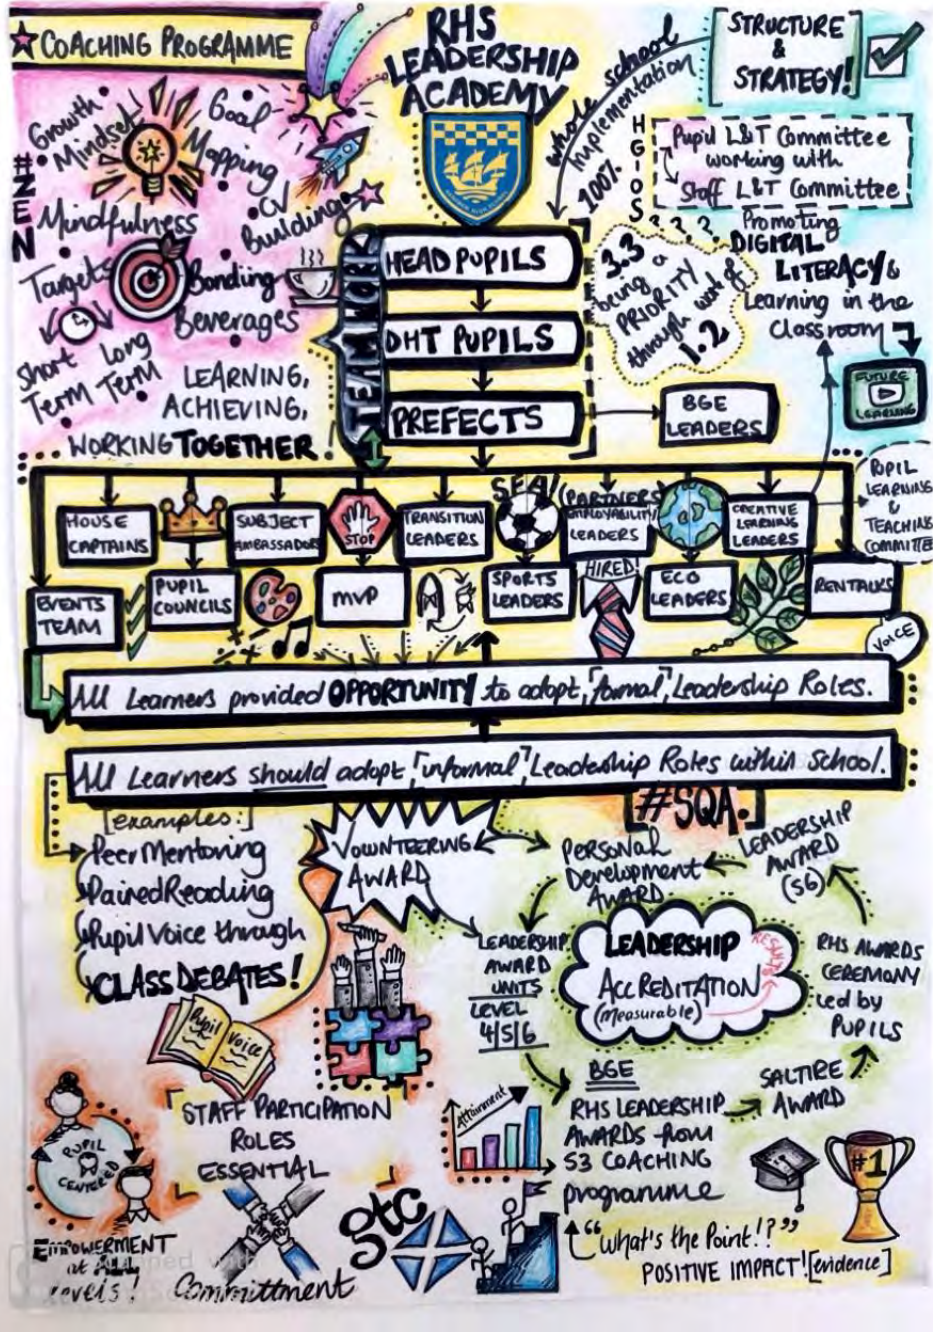 COACHING PROGRAMME
RHS
LEADERSHIP
ACADEMY
STRUCTURE
&
STRATEGY!
whole school
implementation
100%
HGIOS
????
Pupil L&T Committee
working with
Staff L&T Committee
Promoting
DIGITAL
LITERACY &
Learning in the
Classroom
FUTURE
LEARNING
3.3
being a
PRIORITY
through work of
1.2
#ZEN
Growth
Mindset
Goal
Mapping
Mindfulness
CV
Building
Targets
Bonding
Beverages
Short
Term
Long
Term
LEARNING,
ACHIEVING,
WORKING TOGETHER!
TEAMWORK
HEAD PUPILS
DHT PUPILS
PREFECTS
BGE
LEADERS
HOUSE
CAPTAINS
SUBJECT
AMBASSADORS
STOP
TRANSITION
LEADERS
SFA!
(PARTNERS
EMPLOYABILITY)
LEADERS
CREATIVE
LEARNING
LEADERS
PUPIL
LEARNING
&
TEACHING
COMMITTEE
EVENTS
TEAM
PUPIL
COUNCILS
MVP
SPORTS
LEADERS
HIRED!
ECO
LEADERS
RENTALKS
VOICE
All Learners provided OPPORTUNITY to adopt "formal" Leadership Roles.
All Learners should adopt "informal" Leadership Roles within School.
[examples:]
Peer Mentoring
Paired Reading
Pupil Voice through
CLASS DEBATES!
Pupil Voice
VOLUNTEERING
AWARD
#SQA.
PERSONAL
Development
AWARD
LEADERSHIP
AWARD
(S6)
LEADERSHIP
AWARD
UNITS
LEVEL
4/5/6
LEADERSHIP
ACCREDITATION
(Measurable)
RESULTS
RHS AWARDS
CEREMONY
Led by
PUPILS
BGE
RHS LEADERSHIP
AWARDS from
S3 COACHING
programme
SALTIRE
AWARD
Attainment
STAFF PARTICIPATION
ROLES
ESSENTIAL
PUPIL
CENTERED
EMPOWERMENT
at ALL
levels!
Committment
gtc
#1
"What's the Point!?"
POSITIVE IMPACT! [evidence]
Scanned with